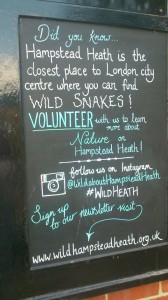 Did you know...
Hampstead Heath is the
closest place to London city
centre where you can find
WILD SNAKES!
VOLUNTEER with us to learn
more about
Nature on
Hampstead Heath!
follow us on Instagram
@WildaboutHampsteadHeath
#WILDHEATH
Sign up
to our newsletter visit
www.wildhampsteadheath.org.uk